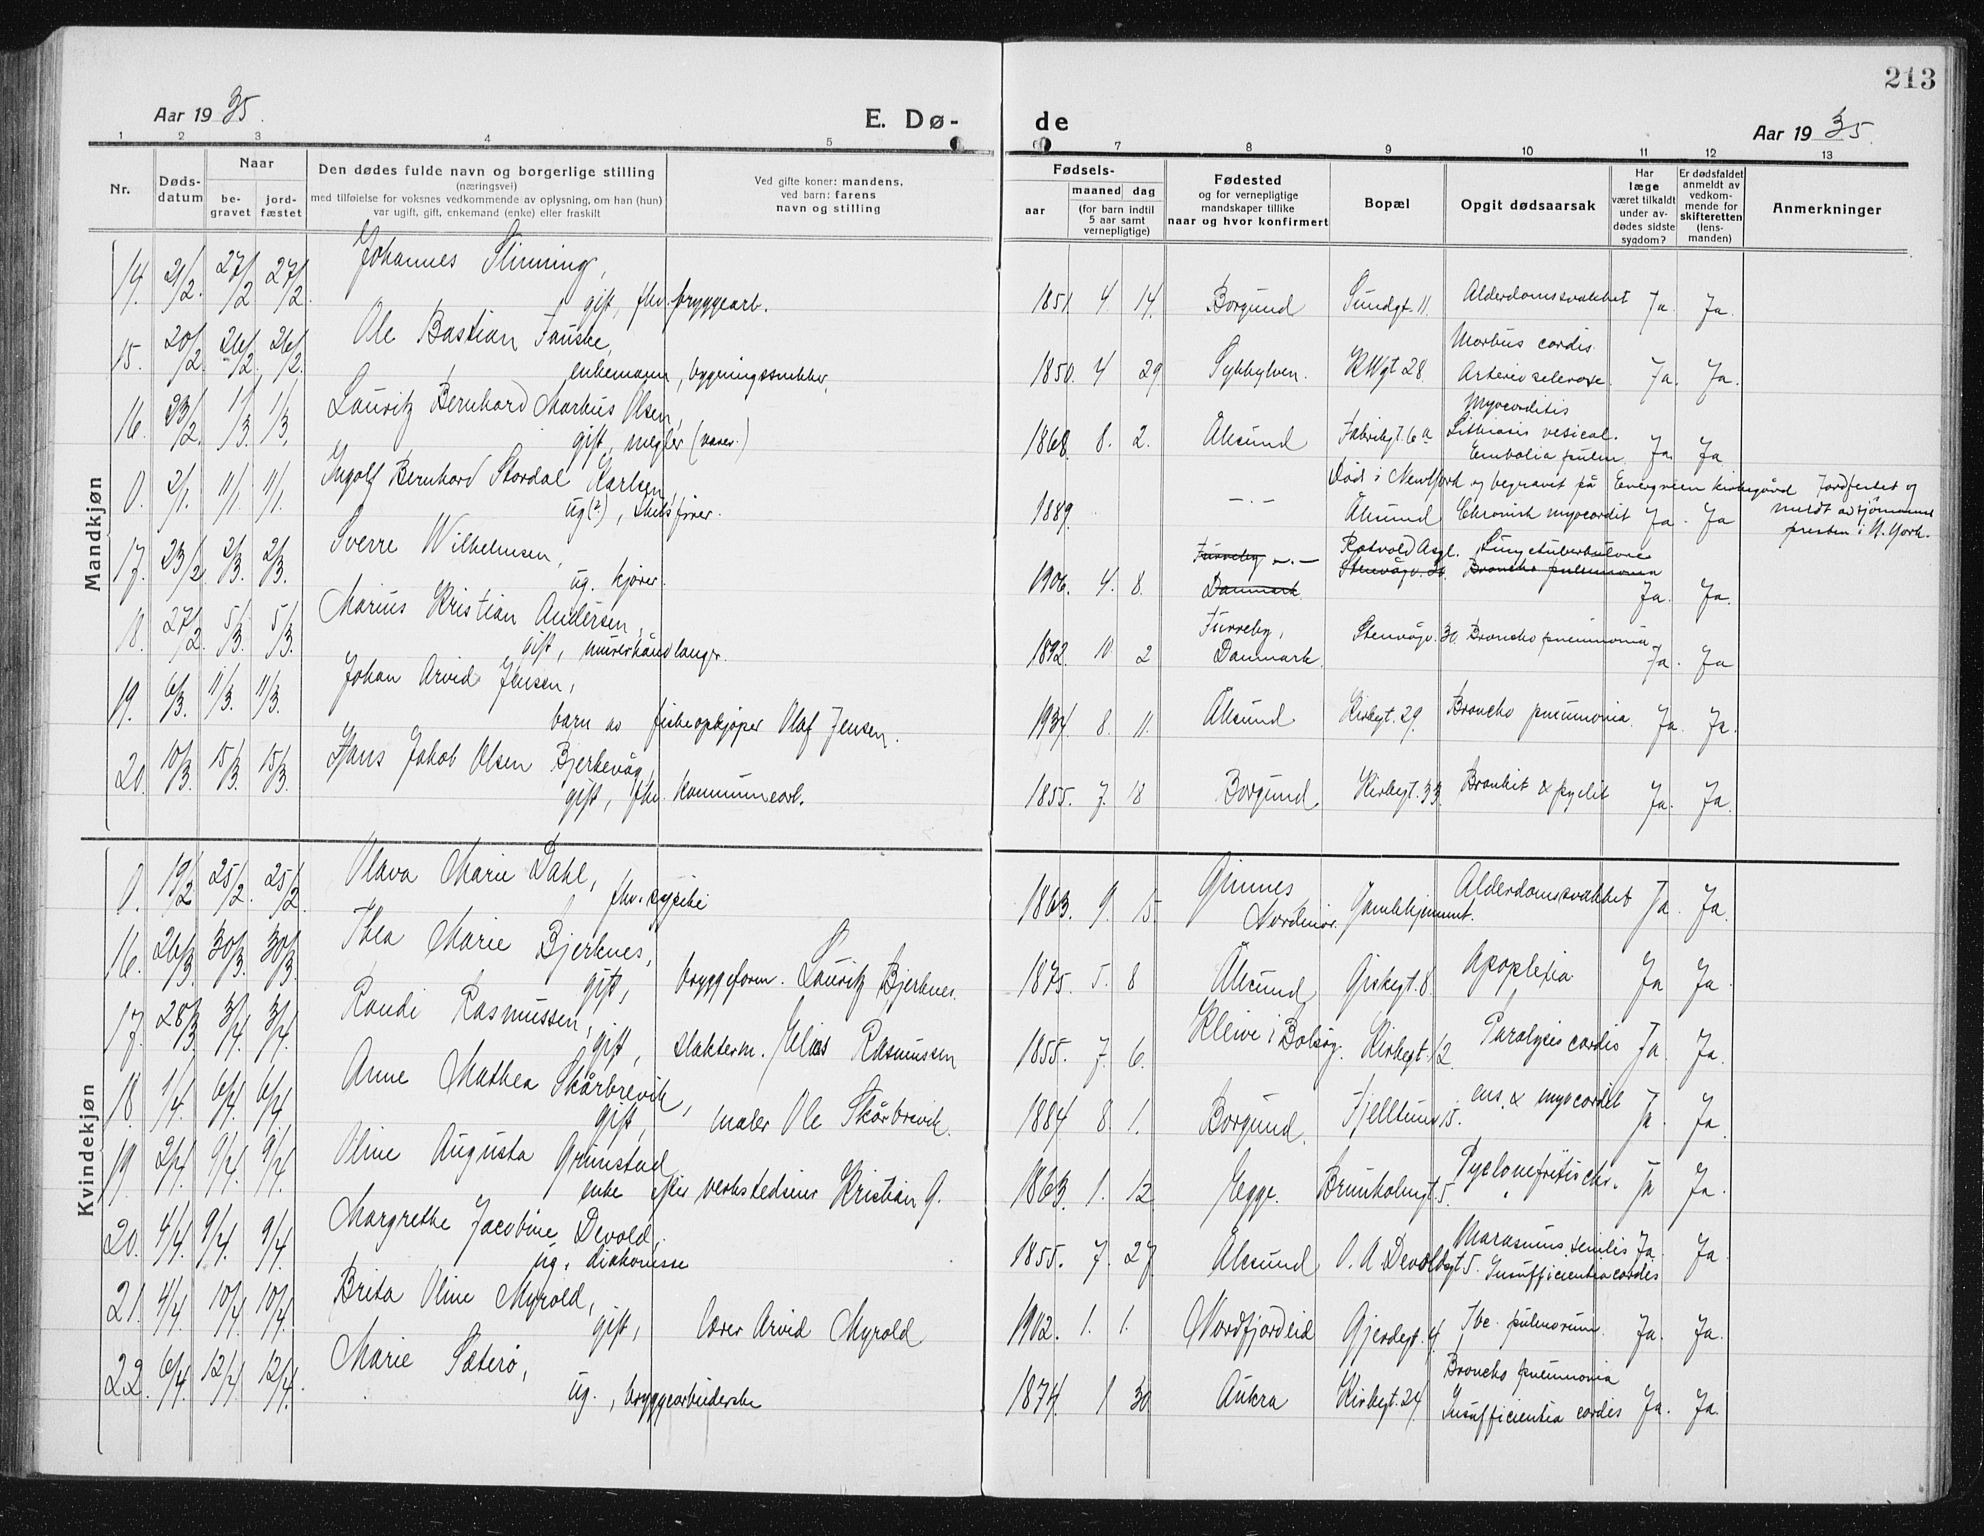 213
Aar 1935.
E. Dø-
de
Aar 1935.
1 2 3 4 5 6 7 8 9 10 11 12 13
Nr.
Døds-
datum
Naar
be-
gravet
jord-
fæstet
Den dødes fulde navn og borgerlige stilling
(næringsvei)
med tilføielse for voksnes vedkommende av oplysning, om han (hun)
var ugift, gift, enkemand (enke) eller fraskilt
Ved gifte koner: mandens,
ved barn: farens
navn og stilling
Fødsels-
aar
maaned dag
(for barn indtil
5 aar samt
vernepligtige)
Fødested
og for vernepligtige
mandskaper tillike
naar og hvor konfirmert
Bopæl
Opgit dødsaarsak
Har
læge
været tilkaldt
under av-
dødes sidste
sygdom?
Er dødsfaldet
anmeldt av
vedkom-
mende for
skifteretten
(lens-
manden)
Anmerkninger
Mandkjøn
14. 21/2. 27/2 27/2. Johannes Slinning,
gift, fhv. bryggearb. 1851. 4. 14. Borgund Sundgt. 11. Alderdomssvakhet Ja. Ja.
15. 20/2. 26/2. 26/2. Ole Bastian Fauske,
enkemann, bygningssnekker, 1850. 4 29 Sykkylven. K Wgt 28 Morbus cordis
Arteriosclerose. Ja. Ja.
16. 23/2. 1/3. 1/3. Lauritz Bernhard Markus Olsen,
gift, megler (varer.) 1868. 8. 2. Ålesund Fabrikgt. 6a Myocarditis
Lithiasis vesical.
Embolia pulm. Ja. Ja
0. 2/1. 11/1. 11/1. Ingolf Bernhard Stordal Karlsen,
ug(?), skibsfører. 1889. -"- Død i Newtford og begravit på Evergreen kirkegård Jordfestet og
Ålesund Chronisk myocardit Ja. Ja meldt av sjømanns
presten i N. York.
17. 23/2 2/3. 2/3. Sverre Wilhelmsen,
ug. kjører. 1906. 4. 8. Furreby -"-
Danmark. Rotvold Asyl.
Stenvågv. 30. Lungetuberkulose
Broncho pneumonia Ja. Ja.
18. 27/2. 5/3. 5/3. Marius Kristian Andersen,
gift, murerhåndlanger. 1892. 10 2 Furreby,
Danmark. Stenvågv. 30. Broncho pneumonia Ja. Ja
19. 6/3. 11/3. 11/3. Johan Arvid Jensen,
barn av fiskeopkjøper Olaf Jensen. 1934. 8. 11. Ålesund Kirkegt. 29. Broncho pneumonia. Ja. Ja.
20. 10/3. 15/3. 15/3. Hans Jakob Olsen Bjerkevåg
gift, fhv. kommunearb. 1855. 7. 18 Borgund. Kirkegt. 33. Bronkit & pyelit Ja. Ja.
Kvindekjøn
0. 19/2 25/2. 25/2. Olava Marie Dahl,
fhv. sypike 1863. 9. 15. Gjemnes
Nordmør. Gamlehjemmet. Alderdomssvakhet Ja. Ja.
16. 26/3 30/3. 30/3. Thea Marie Bjerknes,
gift, bryggeform. Lauritz Bjerknes. 1875. 5. 8 Ålesund Giskegt. 8. Apoplexia Ja Ja.
17. 28/3 3/4. 3/4. Randi Rasmussen,
gift, slakterm. Elias Rasmussen 1855. 7. 6. Kleive i Bolsøy. Kirkegt. 12. Paralysis cordis Ja. Ja.
18. 1/4. 6/4. 6/4. Anne Mathea Skårbrevik,
gift, maler Ole Skårbrevik. 1884 8. 1. Borgund. Fjelltun 15. & myocardit Ja. Ja.
19. 2/4. 9/4. 9/4. Oline Augusta Grimstad
enke efter verkstedseier Kristian G. 1863. 1. 12 Egge. Brunholmgt. 5. Pyelonefritis chr. Ja Ja.
20. 4/4. 9/4. 9/4. Margrethe Jacobine Devold,
ug. diakonisse 1855. 7. 27. Ålesund O. A. Devoldsgt 5. Marasmus senilis
Insufficientia cordis Ja. Ja.
21. 4/4. 10/4. 10/4. Brita Oline Myrold,
gift, lærer Arvid Myrold 1902. 1. 1. Nordfjordeid Gjerdegt. 4. Tbc. pulmonum. Ja. Ja.
22. 6/4. 12/4 12/4. Marie Sæterø,
ug., bryggearbeiderske 1874. 1 30 Aukra Kirkegt. 24. Broncho pneumonia
Insufficientia cordis Ja. Ja.